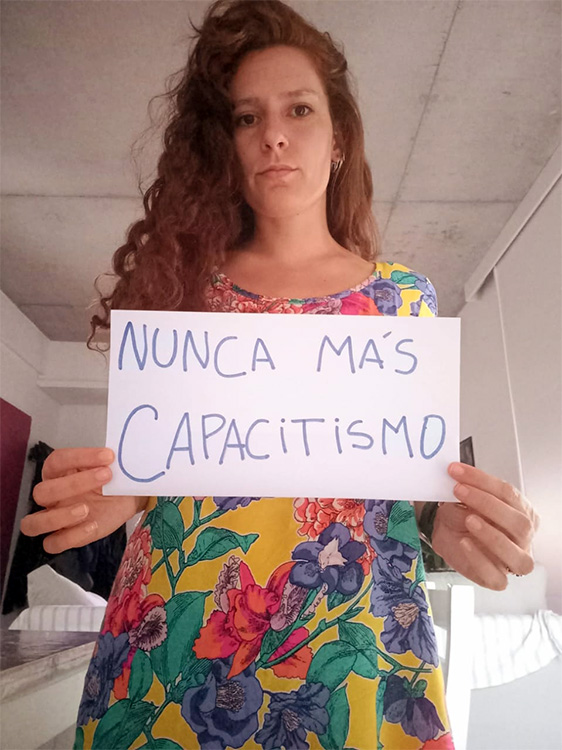 NUNCA MÁS
CAPACITISMO